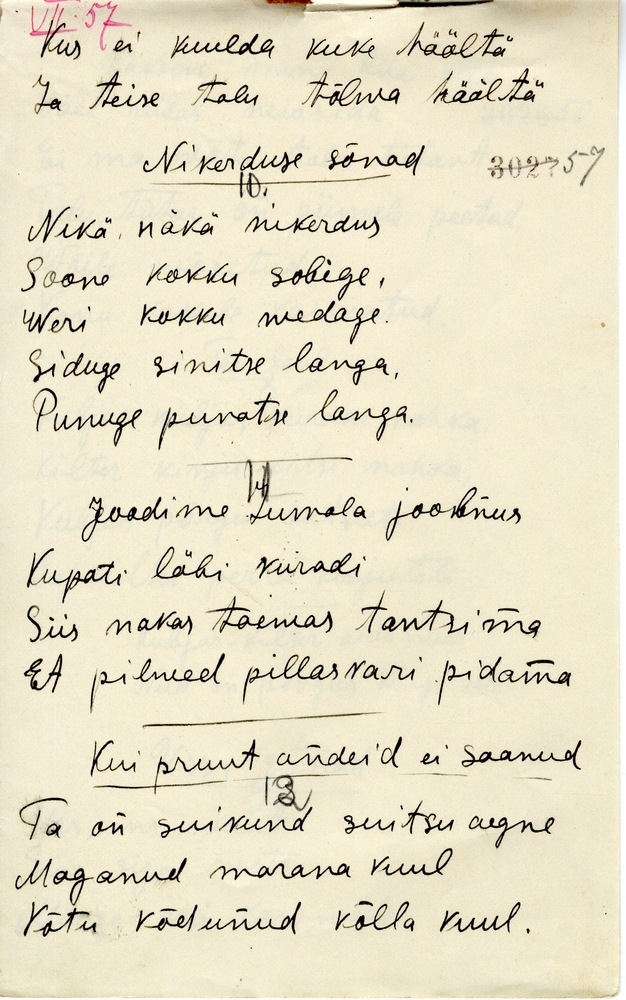 VII. 57
Kus ei kuulda kuke häältä
Ja teise talu tõlwa häältä
Nikerduse sõnad
302757
10.
Nikä, näkä nikerdus
Soone kokku sobige,
Weri kokku wedage.
Siduge sinitse langa,
Punuge punatse langa.
Joodime Jumala joobnus
Kupati läbi kuradi
Siis nakas taemas tantsima
Et pilwed pillasvari pidama
Kui pruut andeid ei saanud
Ta on suikund suitsu aegne
Maganud marana kuul
Võtu kõdunud kõlla kuul.